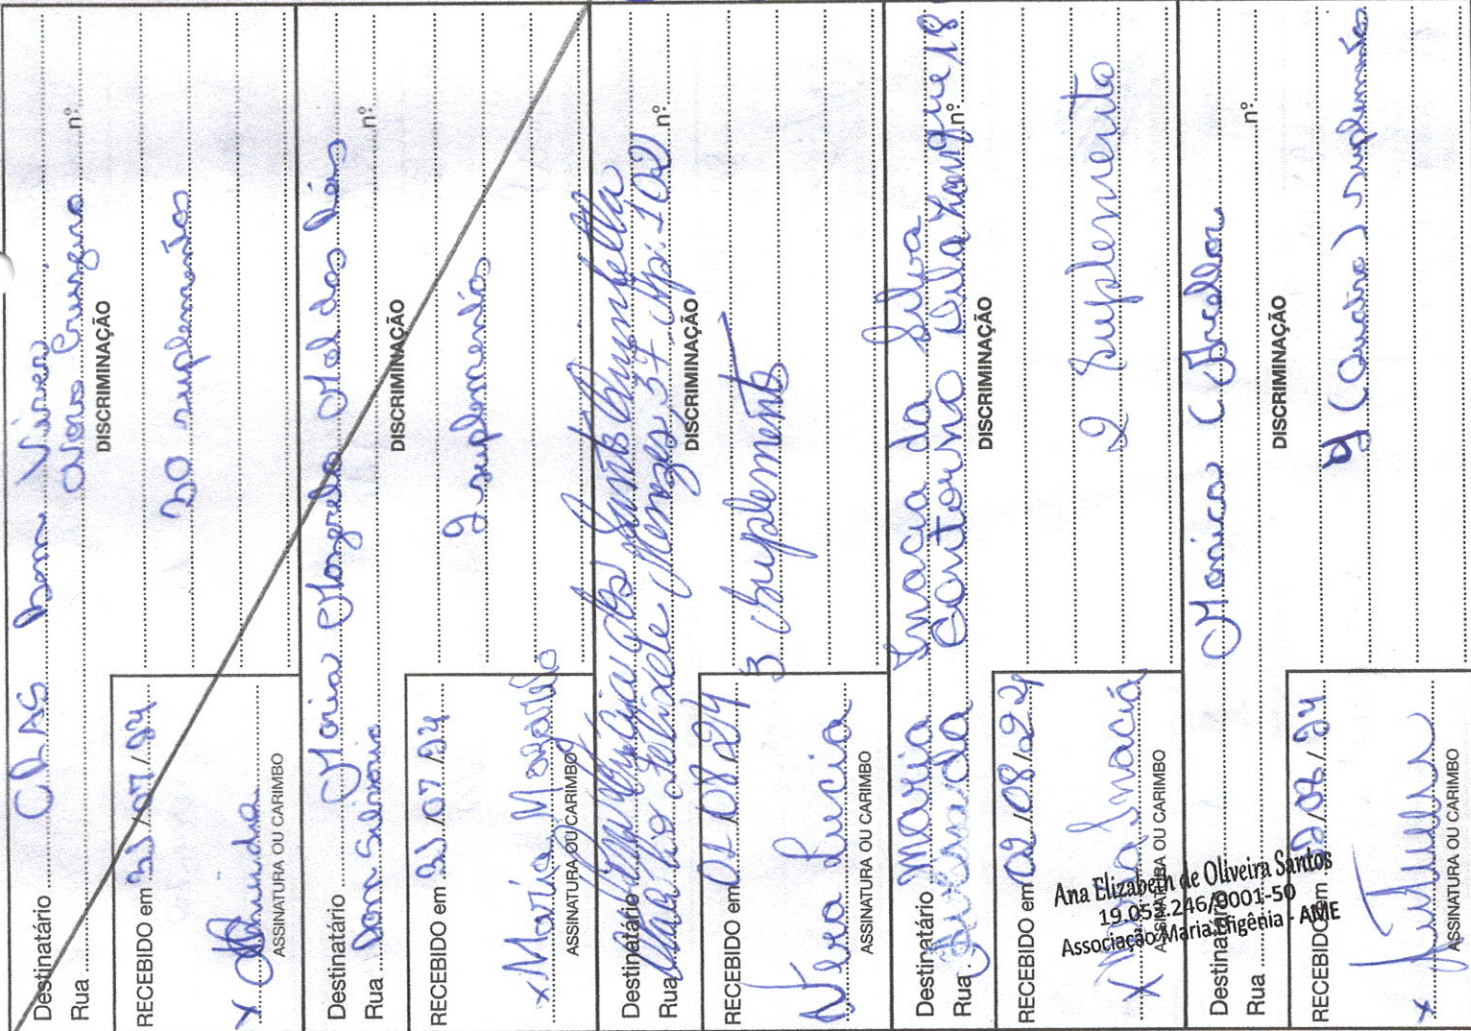 Destinatário CRAS Bom Viver
Rua Novo Cruzeiro nº
DISCRIMINAÇÃO
20 suplementos
RECEBIDO em 31/07/24
x
ASSINATURA OU CARIMBO
Destinatário Maria dos Reis
Rua Dom nº
DISCRIMINAÇÃO
2 suplementos
RECEBIDO em 31/07/24
x Maria
ASSINATURA OU CARIMBO
Destinatário Santo
Rua Menezes 37 Ap: 102 nº
DISCRIMINAÇÃO
3 Suplemento
RECEBIDO em 01/08/24
Vera Lucia
ASSINATURA OU CARIMBO
Destinatário Maria Inacia da Silva
Rua Avenida Contorno Vila 18 nº
DISCRIMINAÇÃO
2 Suplemento
RECEBIDO em 02/08/24
x Maria Inacia
ASSINATURA OU CARIMBO
Ana Elizabeth de Oliveira Santos
19.052.246/0001-50
Associação Maria Efigênia - AME
Destinatário Monica
Rua nº
DISCRIMINAÇÃO
4 (Quatro) suplementos
RECEBIDO em
x
ASSINATURA OU CARIMBO